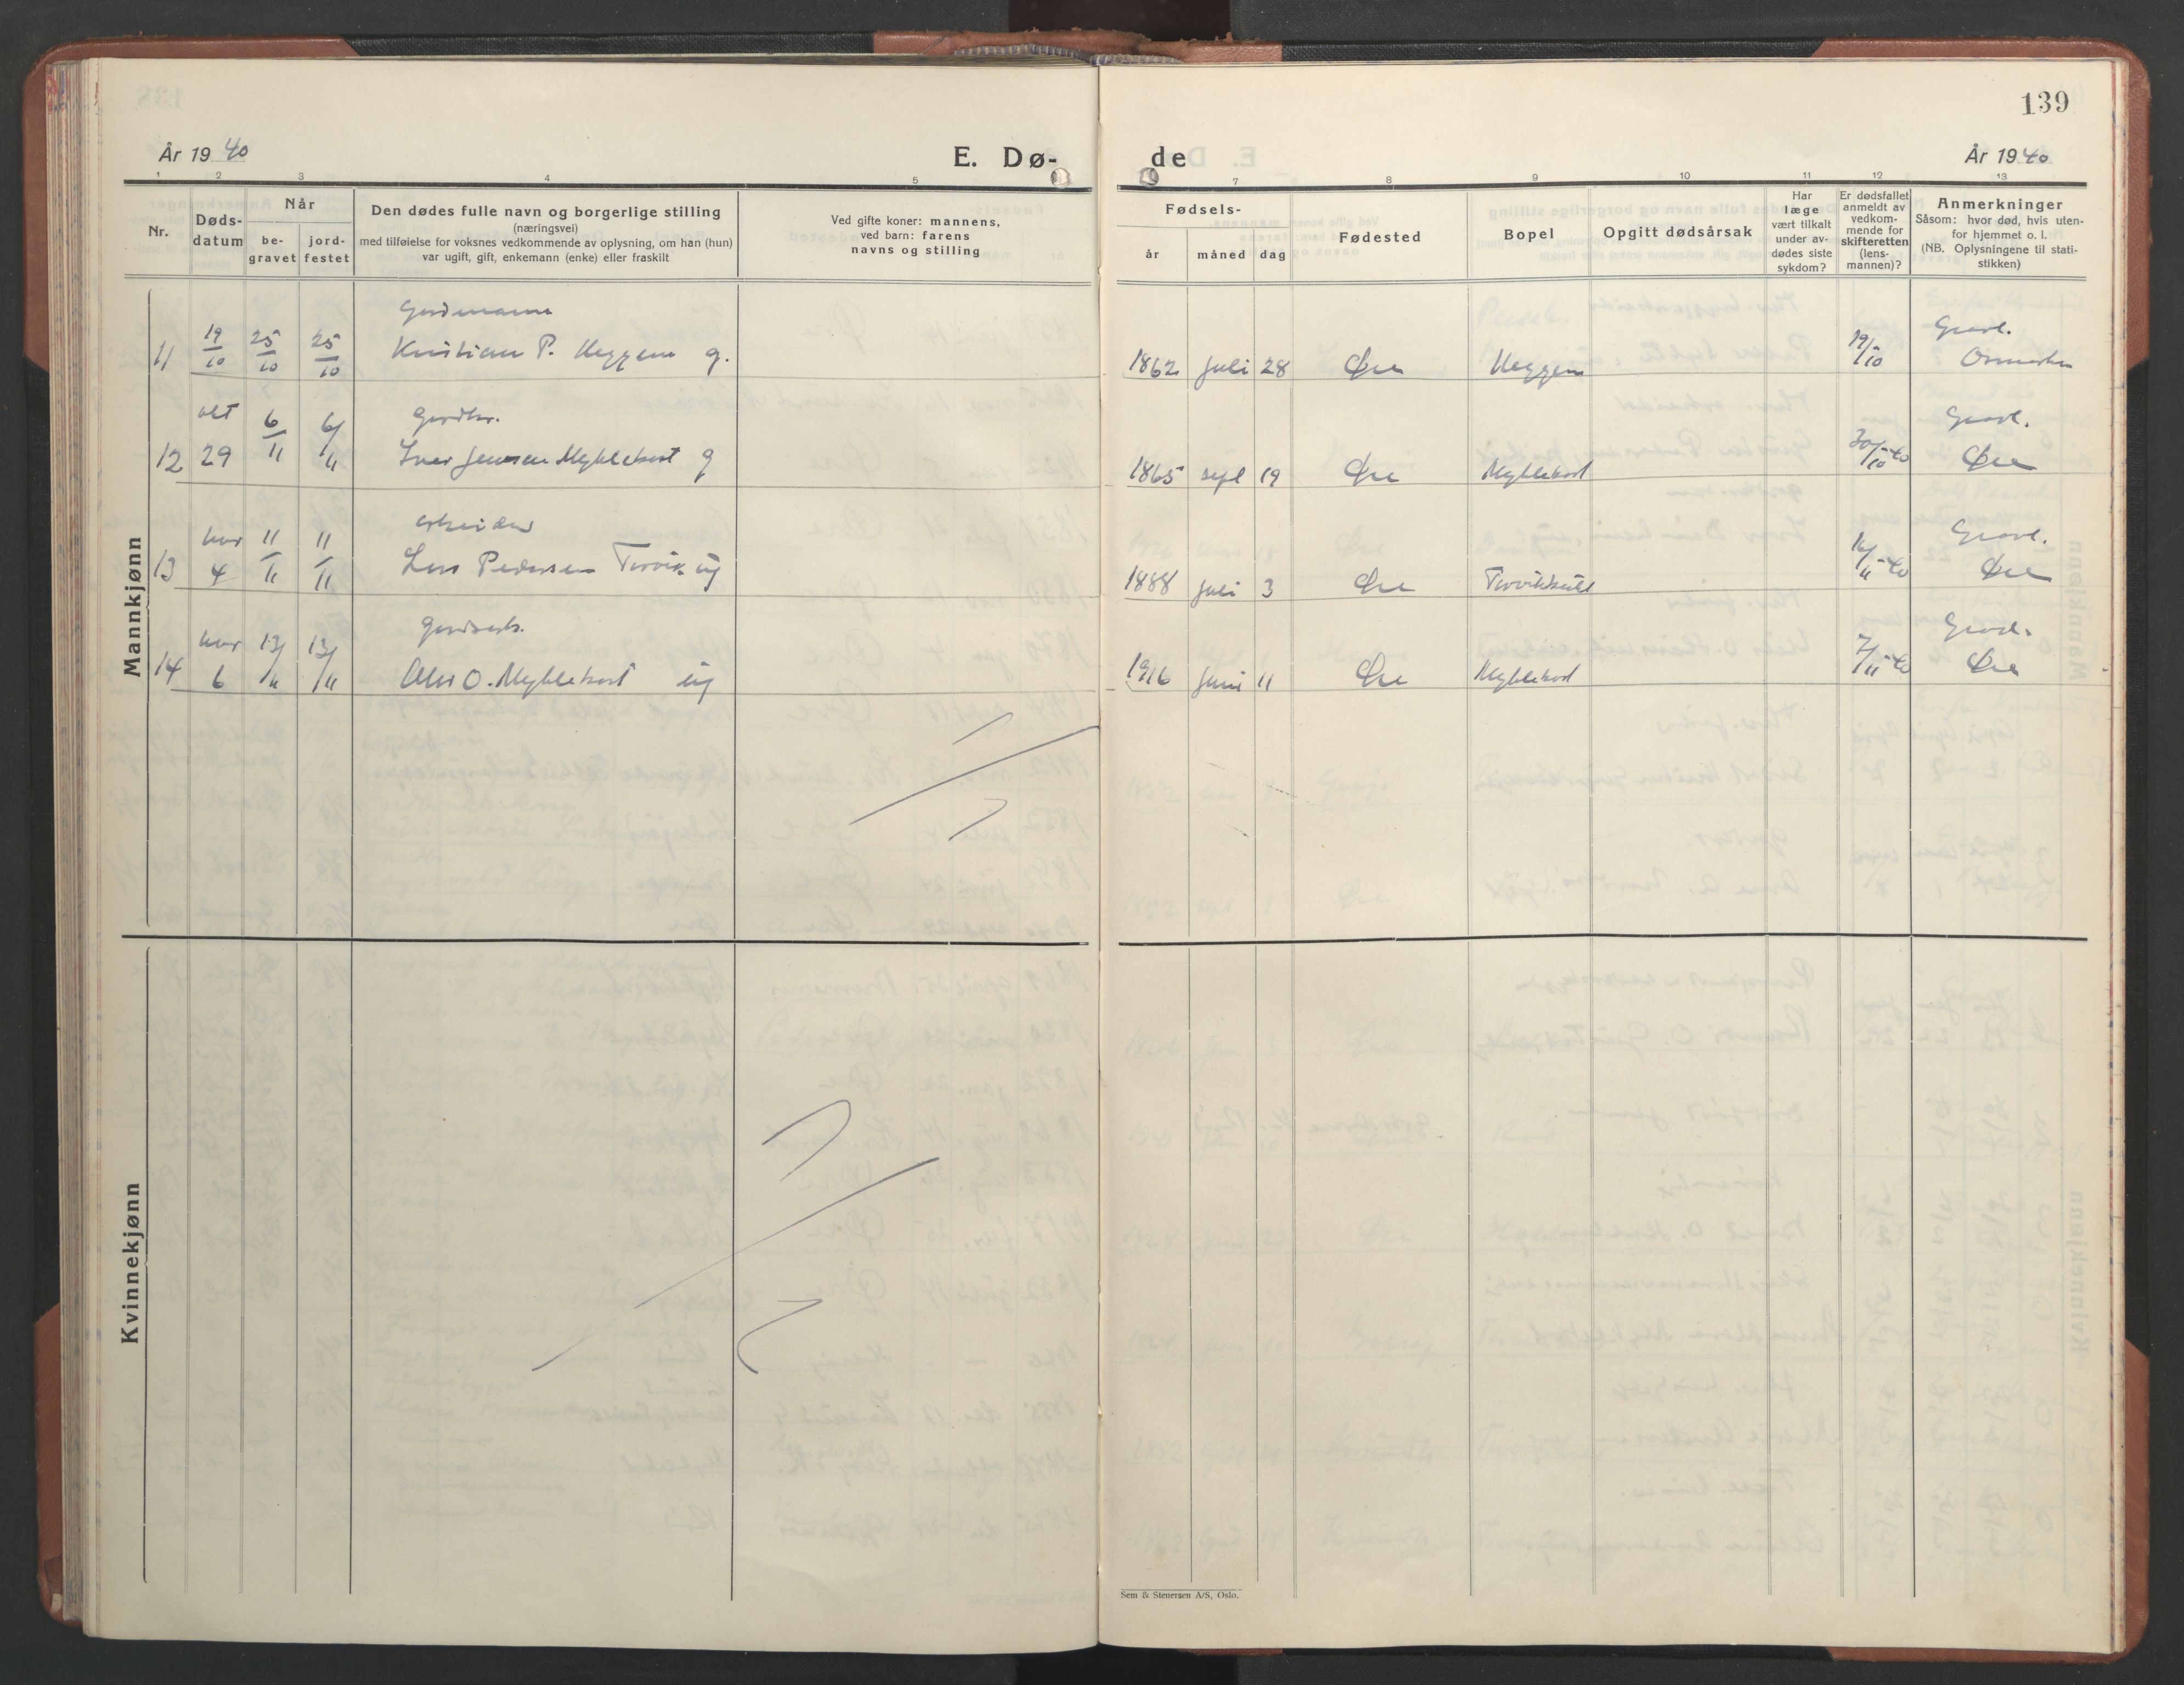 139
År 19 40
E. Dø-
de
År 19 40
1 2 3 4 5 7 8 9 10 11 12 13
Nr.
Døds-
datum
Når
be-
gravet
jord-
festet
Den dødes fulle navn og borgerlige stilling
(næringsvei)
med tilføielse for voksnes vedkommende av oplysning, om han (hun)
var ugift, gift, enkemann (enke) eller fraskilt
Ved gifte koner: mannens,
ved barn: farens
navns og stilling
Fødsels-
år måned dag
Fødested
Bopel
Opgitt dødsårsak
Har
læge
vært tilkalt
under av-
dødes siste
sykdom?
Er dødsfallet
anmeldt av
vedkom-
mende for
skifteretten
(lens-
mannen)?
Anmerkninger
Såsom: hvor død, hvis uten-
for hjemmet o. l.
(NB. Oplysningene til stati-
stikken)
Mannkjønn
Gardmann
11 19/10 25/10 25/10 Kristian P. Heggem g. 1862 juli 28 Øre Heggem 19/10 Gravl.
Osmarka
Gardbr.
12 okt 29 6/11 6/11 Iver Jensen Myklebost g 1865 sept 19 Øre Myklebost 30/10-40 Gravl.
Øre
arbeider
13 nov 4 11/11 11/11 Lars Pedersen Torvik ug 1888 juli 3 Øre Torvik 16/11-40 Gravl.
Øre
Gardsarb.
14 nov 6 13/11 13/11 O. Myklebost ug 1916 juni 11 Øre Myklebost 7/11-40 Gravl.
Øre
Kvinnekjønn
Sem & Stenersen A/S, Oslo.